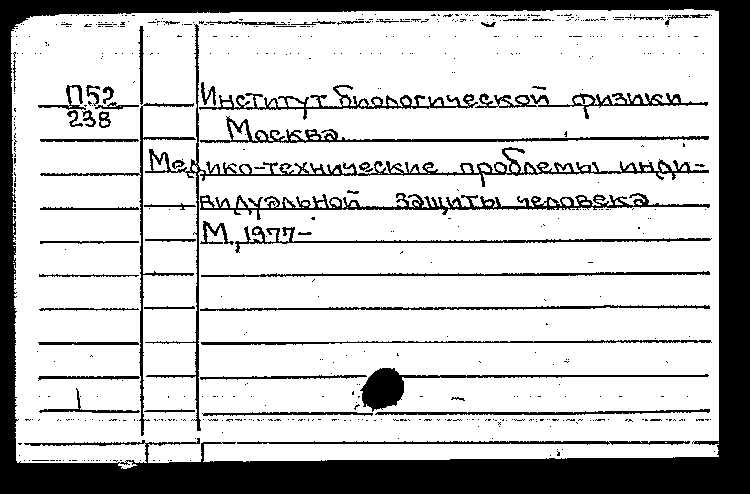 П52
238
Институт биологической физики
Москва.
Медико-технические проблемы инди-
видуальной защиты человека.
М., 1977-